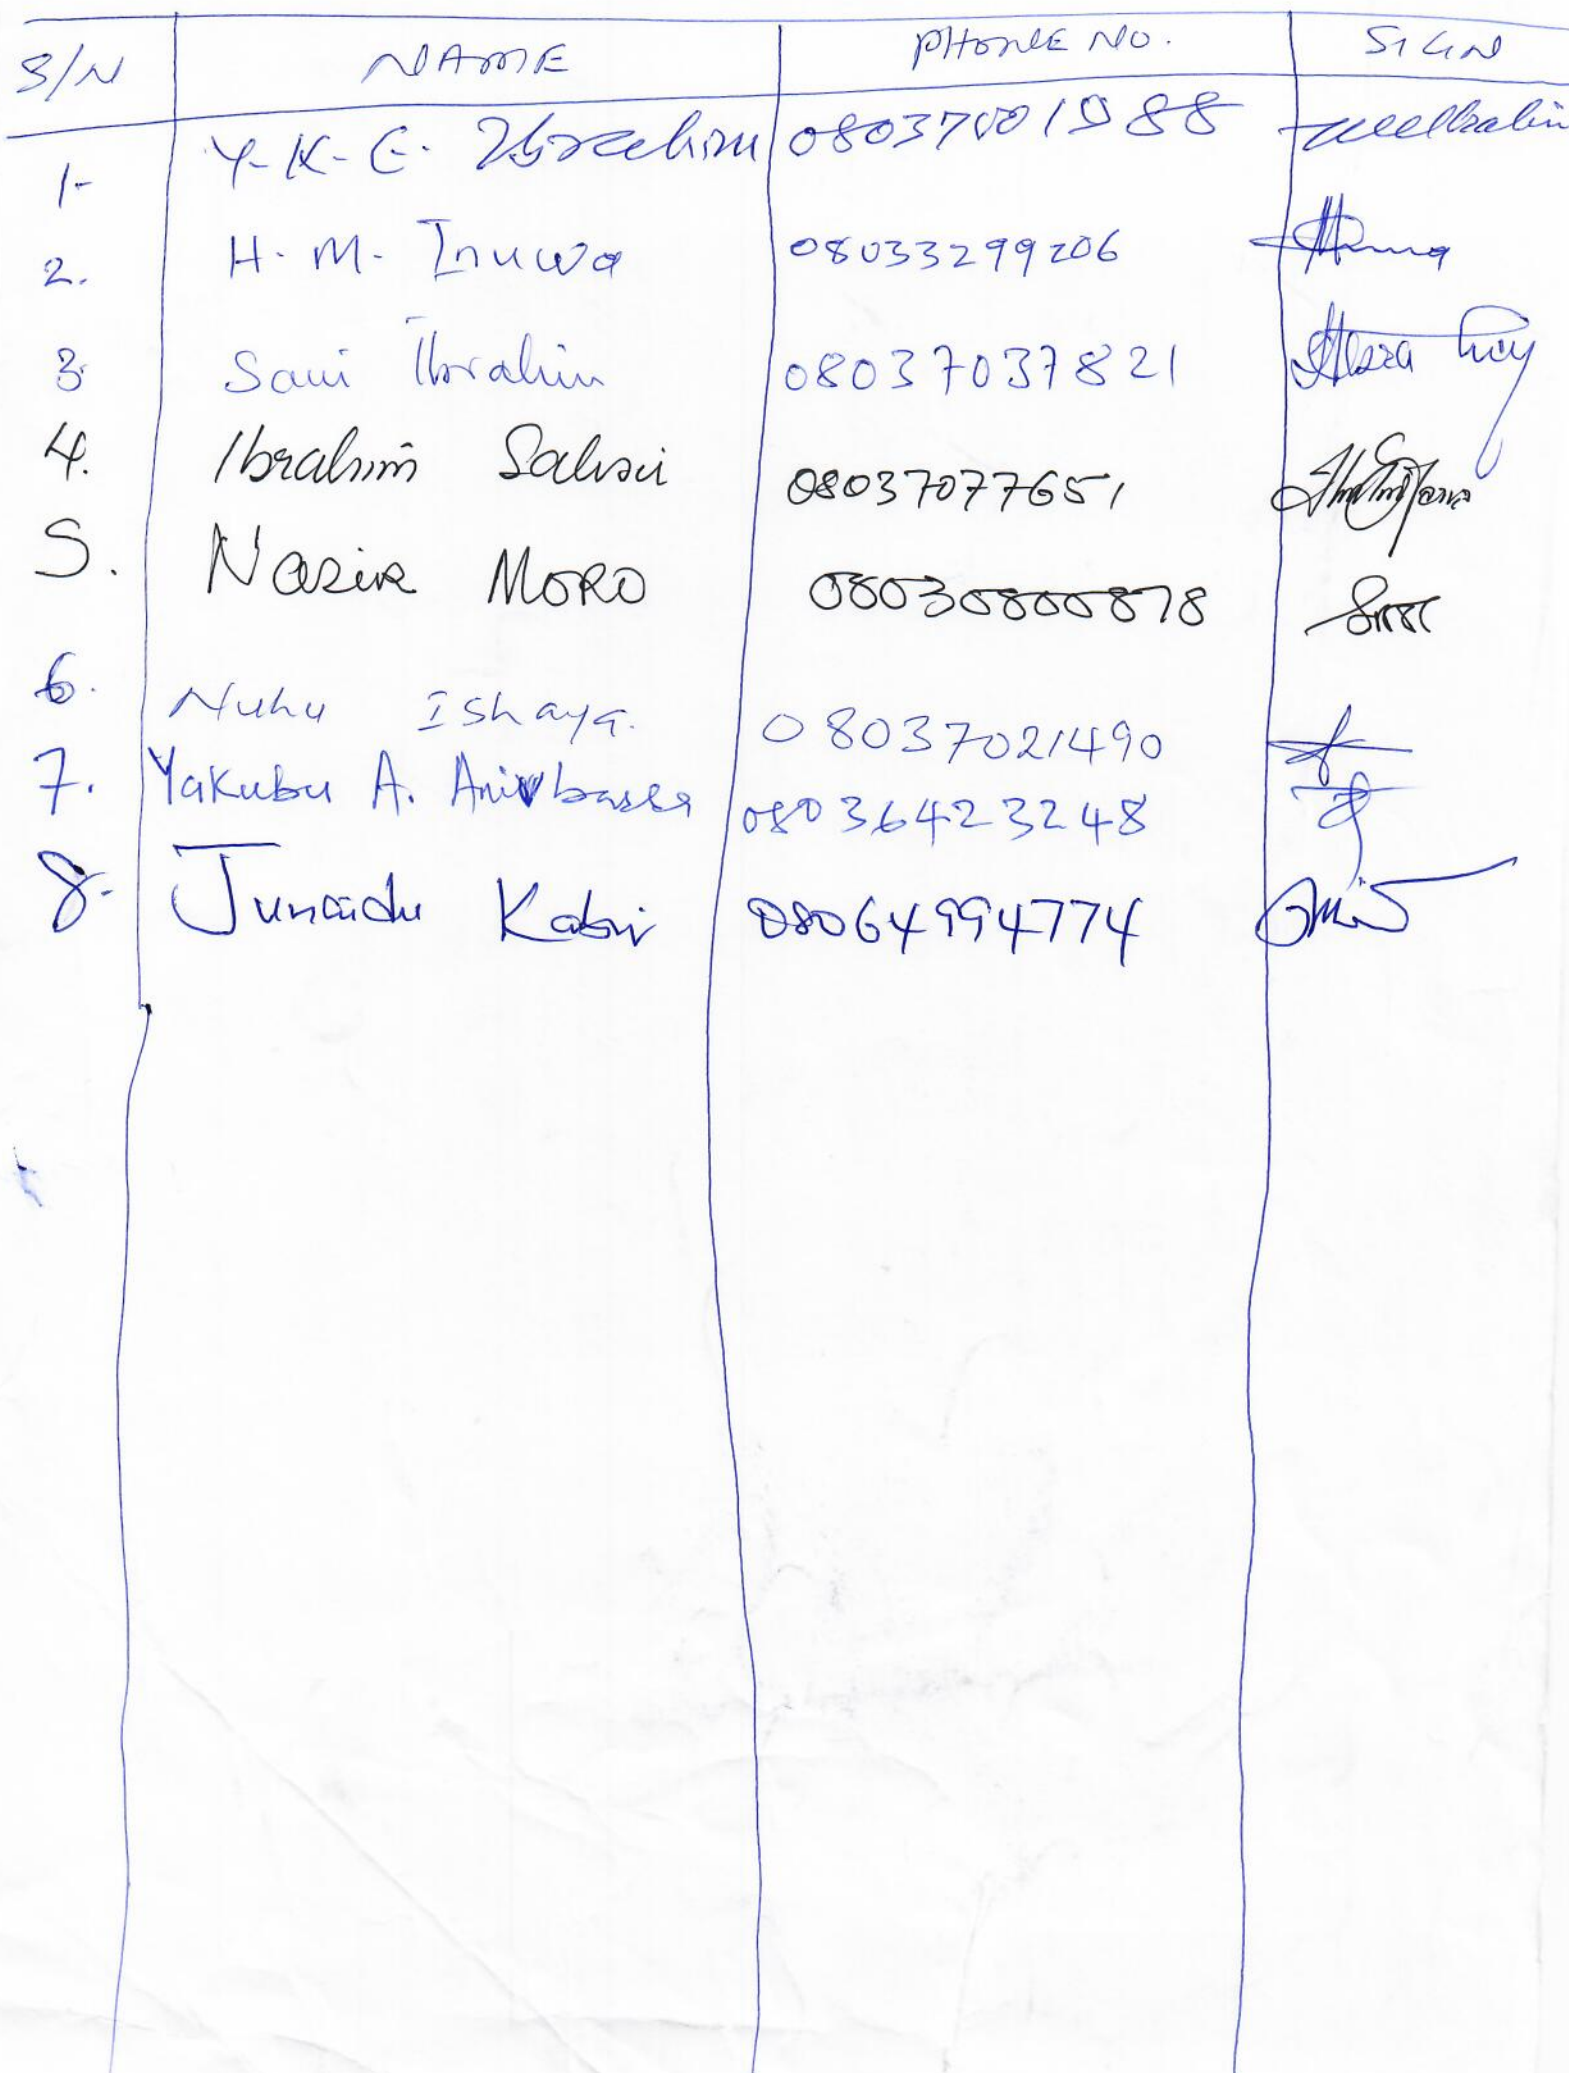 S/N NAME PHONE NO. SIGN
1- Y-K-E. Ibrahim
2. H. M. Inuwa 08033299206
3 Sani Ibrahim 08037037821
4. Ibrahim 08037077651
5. Nazir MORO 08030800878
6. Nuhu Ishaya. 08037021490
7. Yakubu A. 08036423248
8. Junaidu Kabir 08064994774